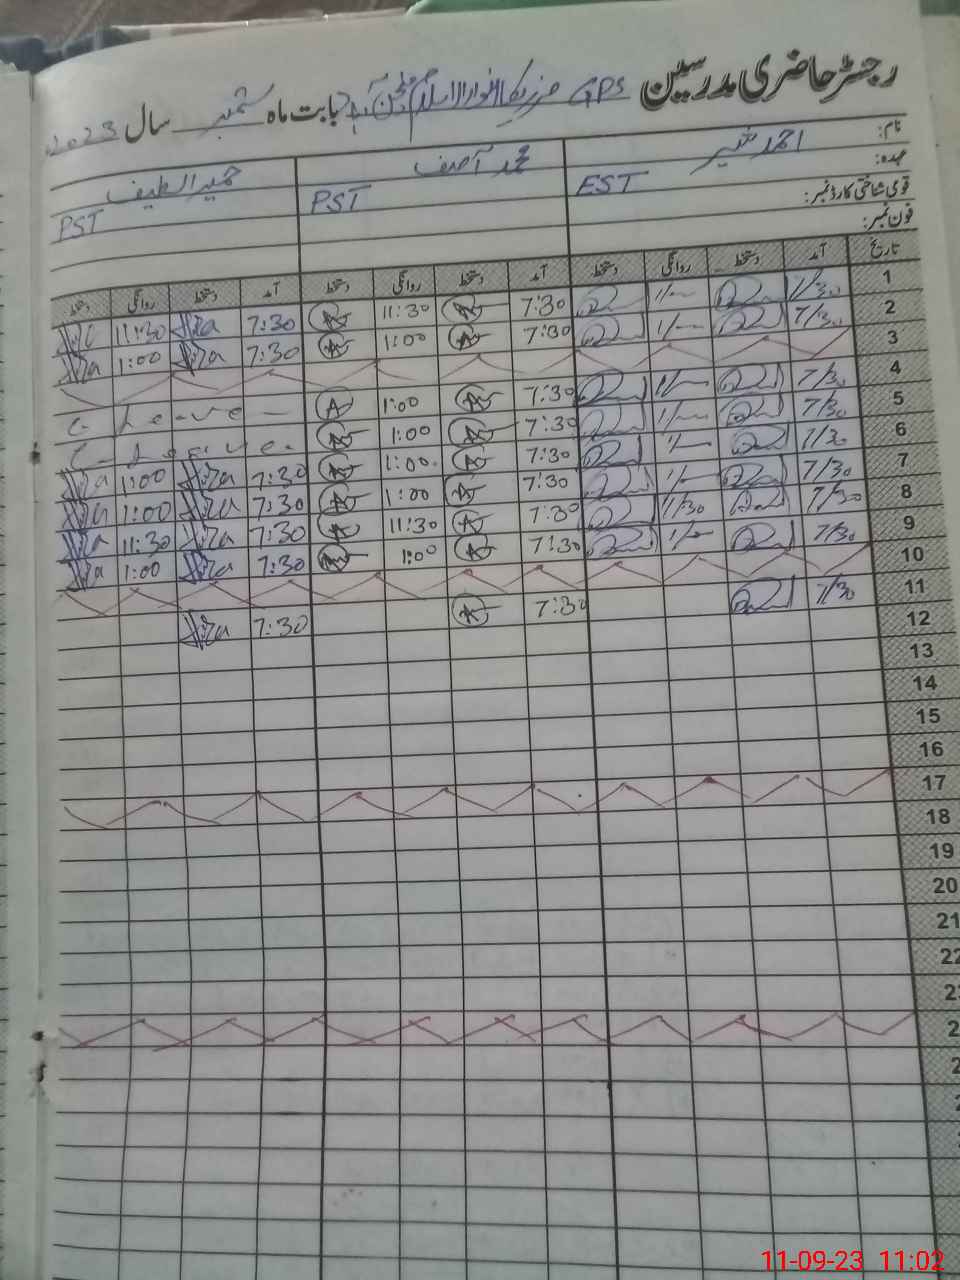 رجسٹر حاضری مدرسین GPS مرزیکا انوار الاسلام بابت ماہ ستمبر سال 2023
نام: احمد شبیر محمد آصف حمیرا لطیف
عہدہ: EST PST PST
قومی شناختی کارڈ نمبر:
فون نمبر:
تاریخ آمد دستخط روانگی دستخط آمد دستخط روانگی دستخط آمد دستخط روانگی دستخط
1 7/30 1/— 7:30 11:30 7:30 Hira 11:30
2 7/30 1/— 7:30 1:00 7:30 Hira 1:00 Hira
3
4 7/30 1/— 7:30 1:00 C. Leave
5 7/30 1/— 7:30 1:00 C. Leave.
6 7/30 1/— 7:30 1:00 7:30 Hira 1:00 Hira
7 7/30 1/— 7:30 1:00 7:30 Hira 1:00 Hira
8 7/30 11/30 7:30 11:30 7:30 Hira 11:30 Hira
9 7/30 1/— 7:30 1:00 7:30 Hira 1:00 Hira
10
11 7/30 7:30 7:30 Hira
12
13
14
15
16
17
18
19
20
21
22
11-09-23 11:02